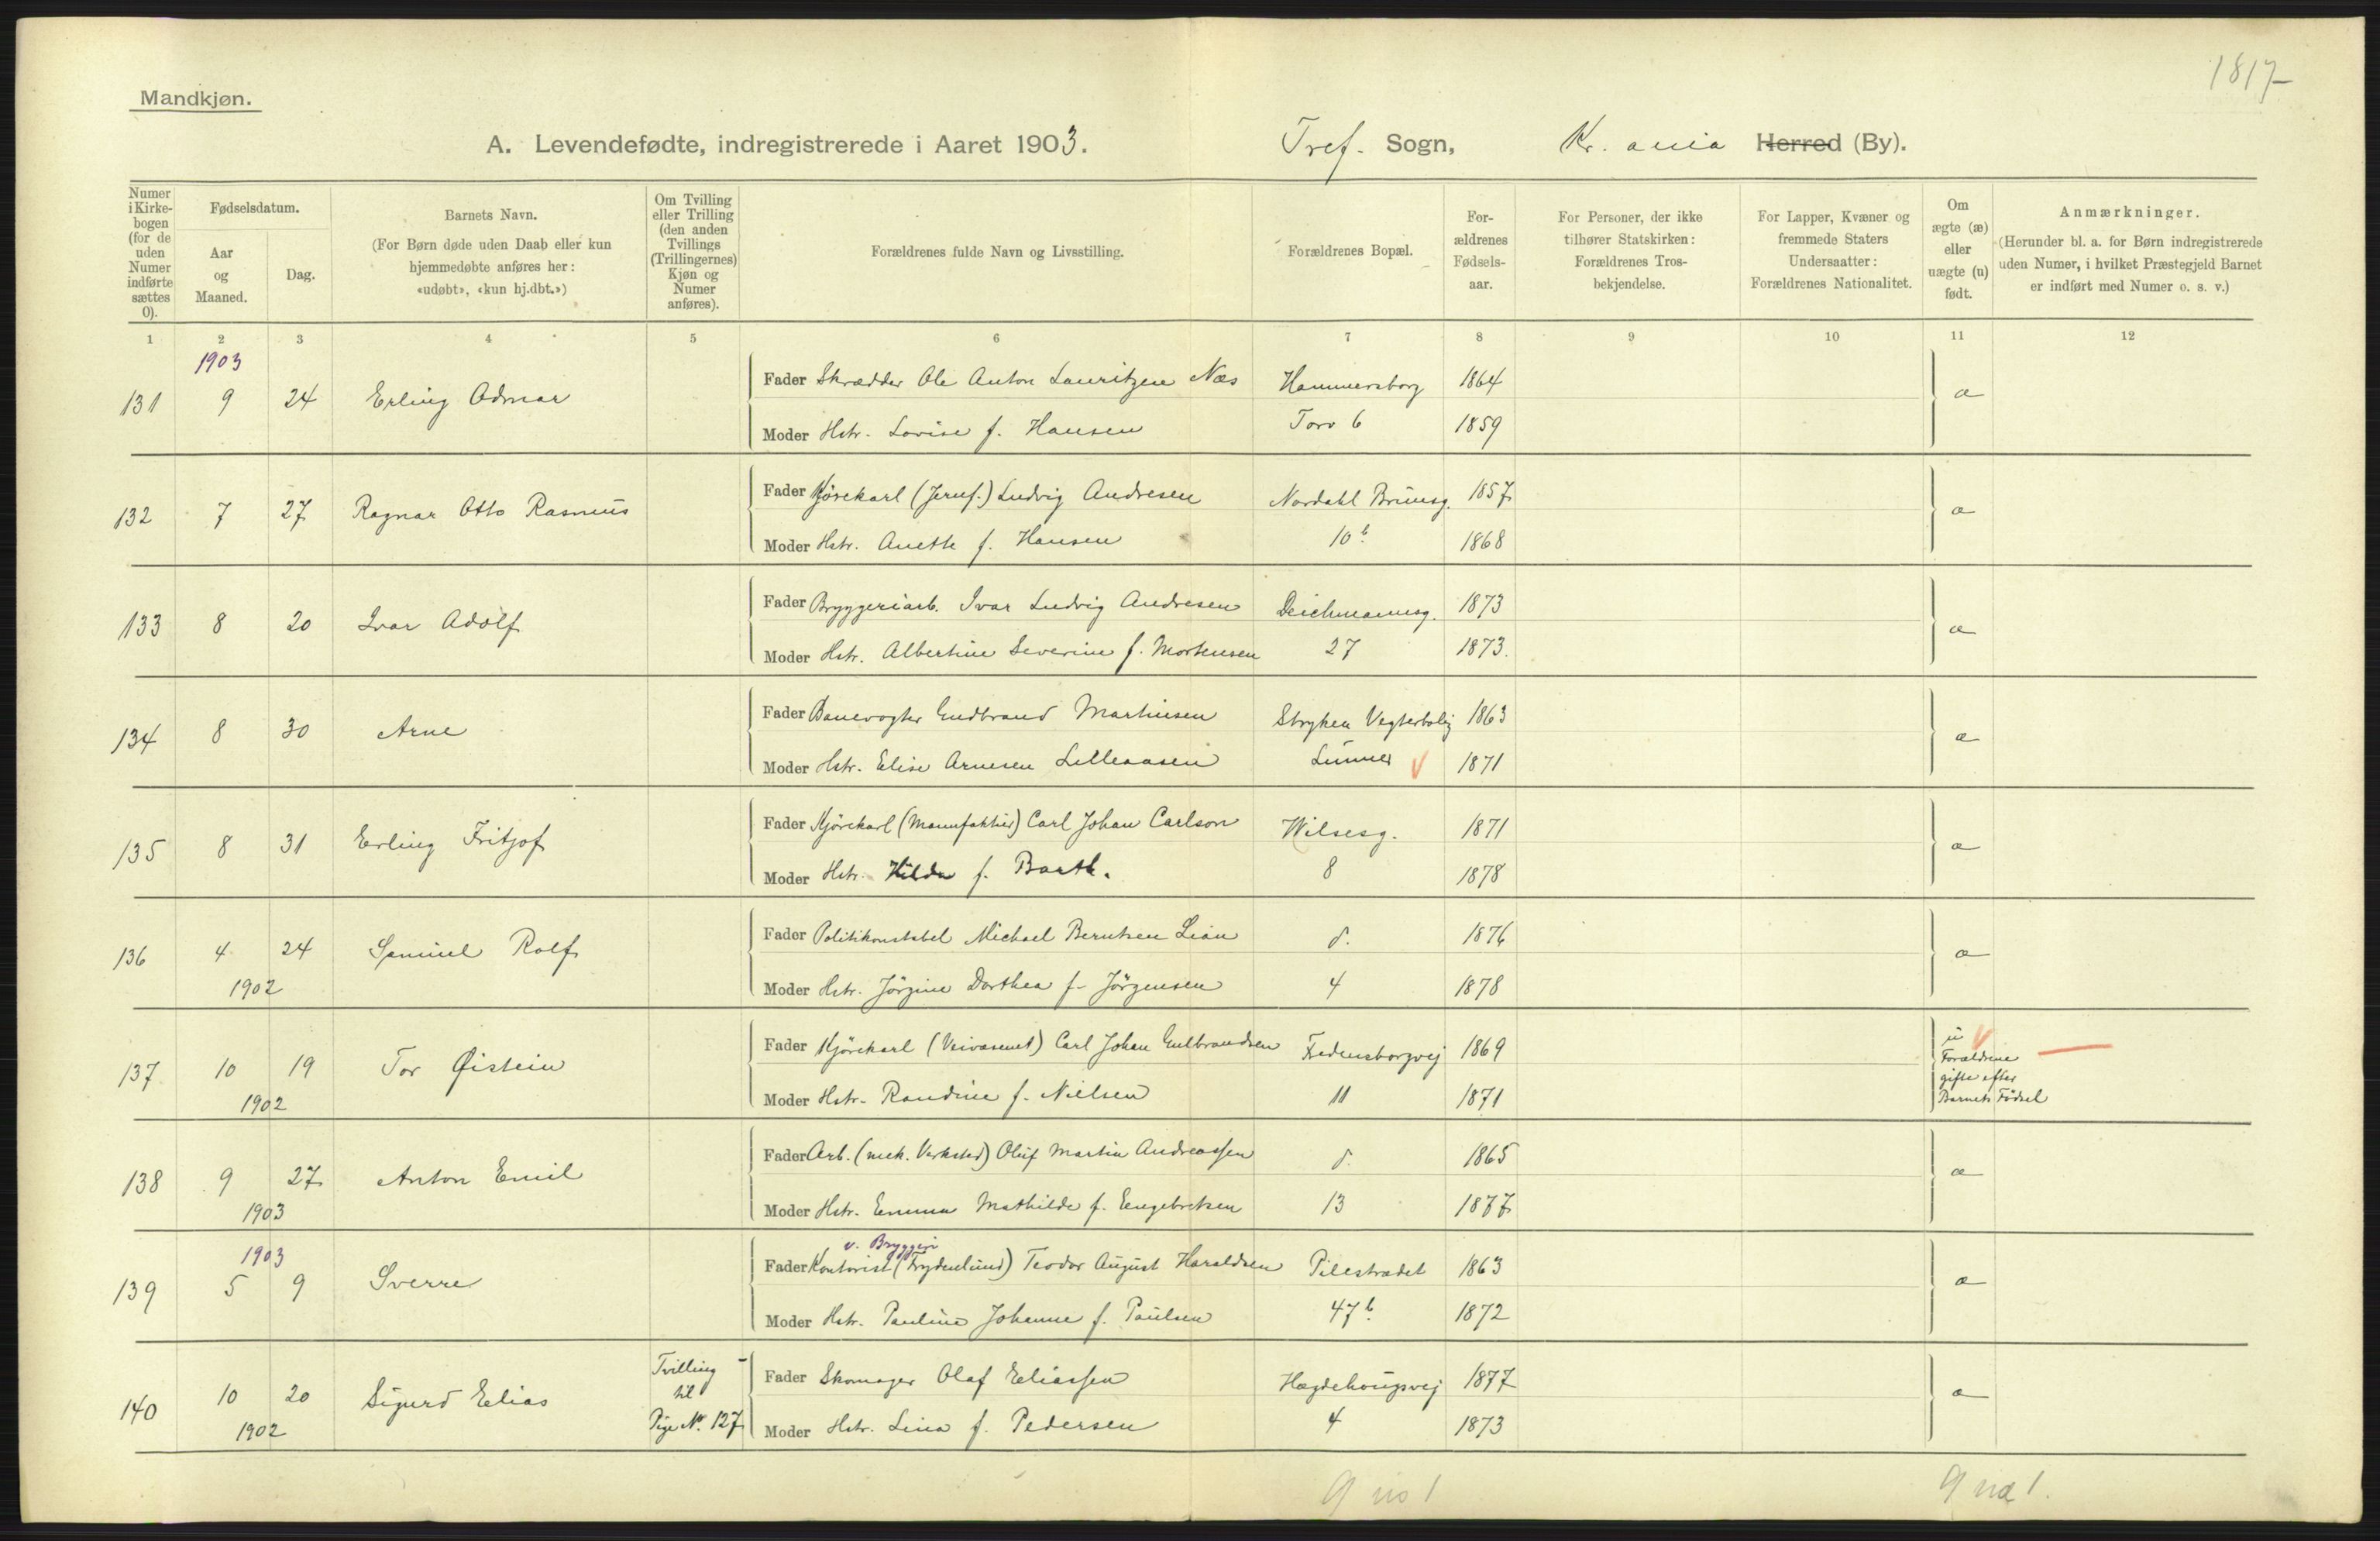 1817
Mandkjøn.
A. Levendefødte, indregistrerede i Aaret 1903. Tref. Sogn, Kr. ania Herred (By).
Numer i Kirke-bogen (for de uden Numer indførte sættes 0).
Fødselsdatum.
Aar og Maaned.
Dag.
Barnets Navn.
(For Børn døde uden Daab eller kun hjemmedøbte anføres her: «udøbt», «kun hj.dbt.»)
Om Tvilling eller Trilling (den anden Tvillings (Trillingernes) Kjøn og Numer anføres).
Forældrenes fulde Navn og Livsstilling.
Forældrenes Bopæl.
For-ældrenes Fødsels-aar.
For Personer, der ikke tilhører Statskirken: Forældrenes Tros-bekjendelse.
For Lapper, Kvæner og fremmede Staters Undersaatter: Forældrenes Nationalitet.
Om ægte (æ) eller uægte (u) født.
Anmærkninger.
(Herunder bl. a. for Børn indregistrerede uden Numer, i hvilket Præstegjeld Barnet er indført med Numer o. s. v.)
1 2 3 4 5 6 7 8 9 10 11 12
1903
131 9 24 Erling Admar
Fader Skrædder Ole Anton Lauritzen Næs Hammersborg 1864 æ
Moder Hstr. Lovise f. Hansen Torv 6 1859
132 7 27 Ragnar Otto Rasmus
Fader Kjørekarl (Jernf.) Ludvig Andresen Nordahl Brunsg. 1857 æ
Moder Hstr. Anette f. Hansen 10b 1868
133 8 20 Ivar Adolf
Fader Bryggeriarb. Ivar Ludvig Andresen Deichmannsg. 1873 æ
Moder Hstr. Albertine Severine f. Mortensen 27 1873.
134 8 30 Arne
Fader Banevogter Gudbrand Martinsen Stryken Vogterbolig 1863 æ
Moder Hstr. Elise Arnesen Lilleaasen Lunner 1871
135 8 31 Erling Fritjof
Fader Kjørekarl (Manufaktur) Carl Johan Carlson Wilsesg. 1871 æ
Moder Hstr. Hilda f. Barth. 8 1878
136 4 24 Samuel Rolf
Fader Politikonstabel Michael Berntsen Lian d. 1876 æ
1902
Moder Hstr. Jörgine Dorthea f. Jörgensen 4 1878
137 10 19 Tor Øistein
Fader Kjørekarl (Veivæsenet) Carl Johan Gulbrandsen Fredensborgvej 1869
1902
Moder Hstr. Randine f. Nielsen 11 1871
u Forældrene gifte efter Barnets Födsel
138 9 27 Anton Emil
Fader Arb. (mek. Verksted) Oluf Martin Andreassen d. 1865 æ
1903
Moder Hstr. Emma Mathilde f. Engebretsen 13 1877
1903
v. Bryggeri
139 5 9 Sverre
Fader Kontorist (Frydenlund) Teodor August Haraldsen Pilestrædet 1863 æ
Moder Hstr. Pauline Johanne f. Paulsen 47b 1872
140 10 20 Sigurd Elias Tvilling til Pige No. 127
Fader Skomager Olaf Eliassen Hægdehougsvej 1877 æ
1902
Moder Hstr. Lina f. Pedersen 4 1873